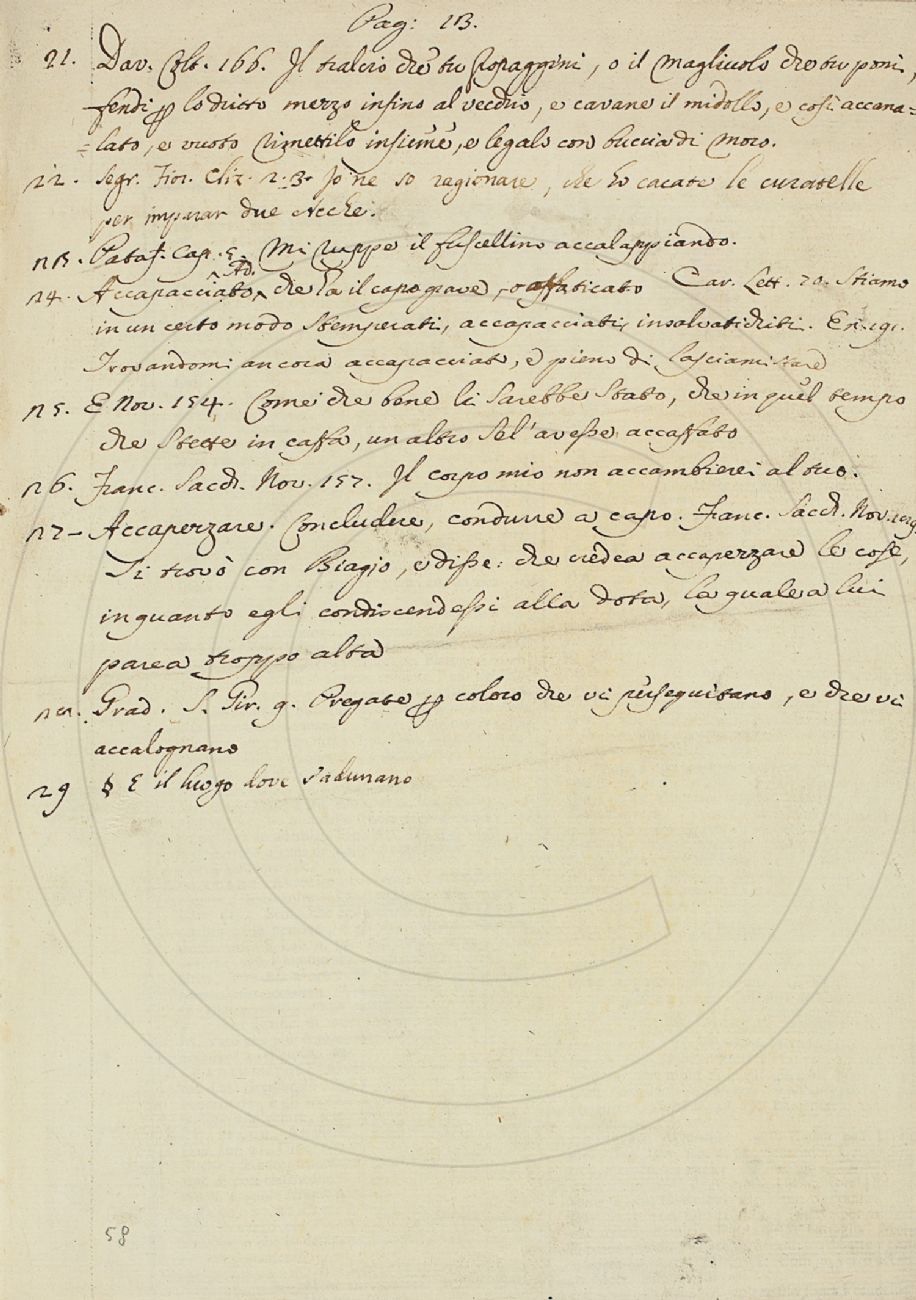 Pag: 13.
21. Dav. Colt. 166. Il tralcio che tu Propaggini, o il Magliuolo che tu poni,
fendi p lo dritto mezzo infino al vecchio, e cavane il midollo, e così accana=
=lato, e vuoto rimettilo insieme, e legalo con buccia di Moro.
22. Segr. Fior. Cliz. 2. 3. Io ne so ragionare, che ho cacate le curatelle
per imparar due Acche.
23. Pataf. Cap. 5. Mi ruppe il fuscellino accalappiando.
24. Accapacciato, Ad. che ha il capo grave, o affaticato Car. Lett. 20. Stiamo
in un certo modo stemperati, accapacciati, insalvatichiti. E n. 191.
Trovandomi ancora accapacciato, e pieno di lasciami stare
25. E Nov. 154. Come che bene li sarebbe stato, che in quel tempo
che stette in cassa, un altro sel' avesse accassato
26. Franc. Sacch. Nov. 157. Il corpo mio non accambierei al tuo.
27 - Accapezzare. Concludere, condurre a capo. Franc. Sacch. Nov.
Si trovò con Biagio, e disse: che vedea accapezzare le cose,
inquanto egli condiscendessi alla dota, la quale a lui
parea troppo alta
28. Grad. S. Gir. 9. Pregate p coloro che vi perseguitano, e che vi
accalognano
29 § E il luogo dove s'adunano
58